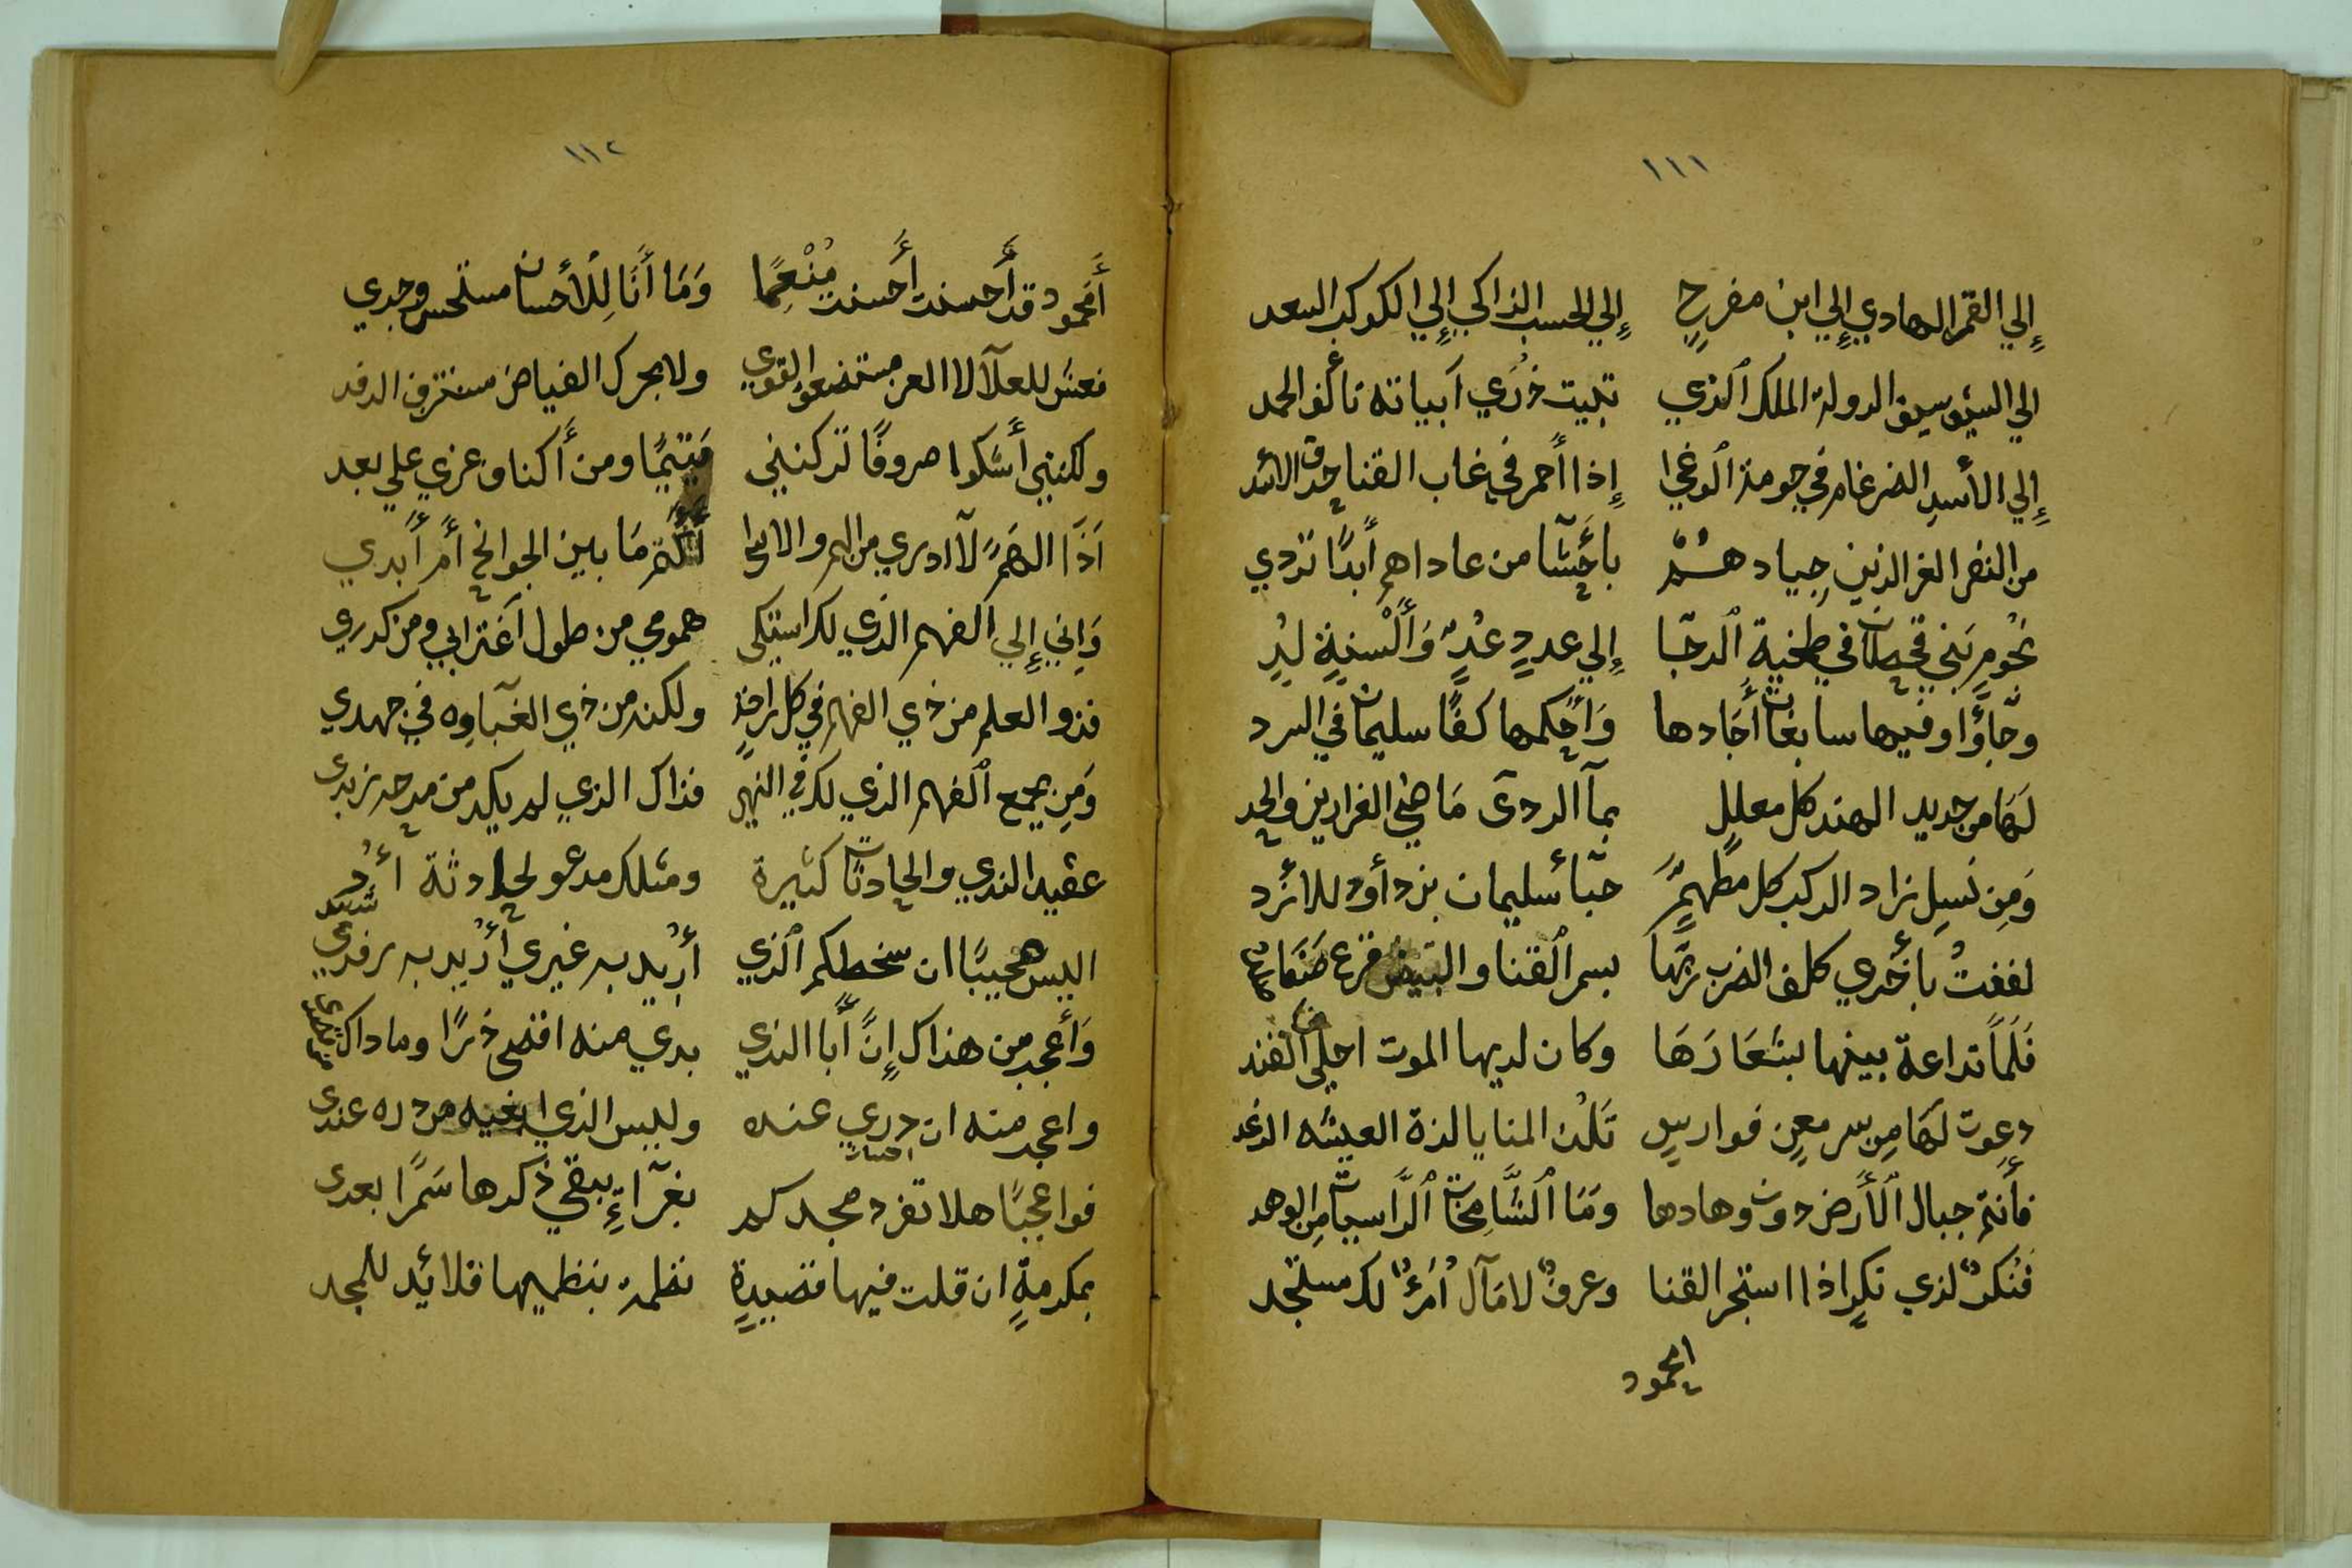 ١١١
إلي القمر الهادي إلي ابن مفرح إلي الحسب الذاكي إلي الكوكب السعد
الي السيف سيف الدولة الملك ٱلذي تبيت ذري أبياته تألف الحمد
إلي الأسد الضرغام في حومة ٱلوغي إذا أحمر في غاب القنا حدق الاسد
من النفر الغر الذين جياد هم بأحشا من عاداهم أبدًا تردي
نجوم بني قحطان في طخية ٱلدجا إلي عدد عد وألسنة لد
وجاؤا وفيها سابغات أجادها وأحكمها كفا سليمان في السرد
لها من حديد الهند كل معلل بمآ الردى ماضي الغرارين والحد
ومن نسل زاد الركب كل مطهم حبا سليمان بن دأود للازد
لففت بأخري كلف الضرب ربها بسمر ٱلقنا والبيض قرع
فلما تداعة بينها بشعارها وكان لديها الموت احلى من القند
دعوت لها من سر معن فوارس تلذ المنايا لذة العيشه الرغد
فأنتم جبال ٱلأرض دون وهادها وما ٱلشامخات ٱلراسيات من الوهد
فنكر لذي نكر اذا استجر القنا وعرف لامآل أمرء لك مستجد
امحمود
١١٢
أمحمود قد أحسنت أحسنت منعما وما أنا للأحسان مستحسن وحدي
فعش للعلآ لا العز مستضعف القوي ولا بحرك الفياض مستنزف الرفد
ولكنني أشكوا صروفا تركنني متيما ومن أكناف عزي علي بعد
أذا الهم لآ ادري من الهم والاسا أأكتم ما بين الجوانح أم أبدي
وإني إلي ٱلفهم الذي لك اشتكى همومي من طول أغترابي ومن كدري
فذو العلم من ذي الفهم في كل راحة ولكنه من ذي الغباوه في جهدي
ومن يجمع ٱلفهم الذي لك في النهى فذاك الذي لم يكد من مدحه زندى
عقيد الندي والحادثات كثيرة ومثلك مدعو لحادثة أد
اليس عجيبا ان سخطكم ٱلذي أريد به غيري أريد به رفدي
وأعجب من هذاك إن أبا الندي بدي منه افتضح ذرا وما داك من
واعجب منه ان دري عنده وليس الذي ابغيه من دره عندى
فواعجبا هلا تفرد مجدكم بغرآء يبقي ذكرها سمرا بعدى
بمكرمة ان قلت فيها قصيدة نظمت بنظميها قلائد للمجد